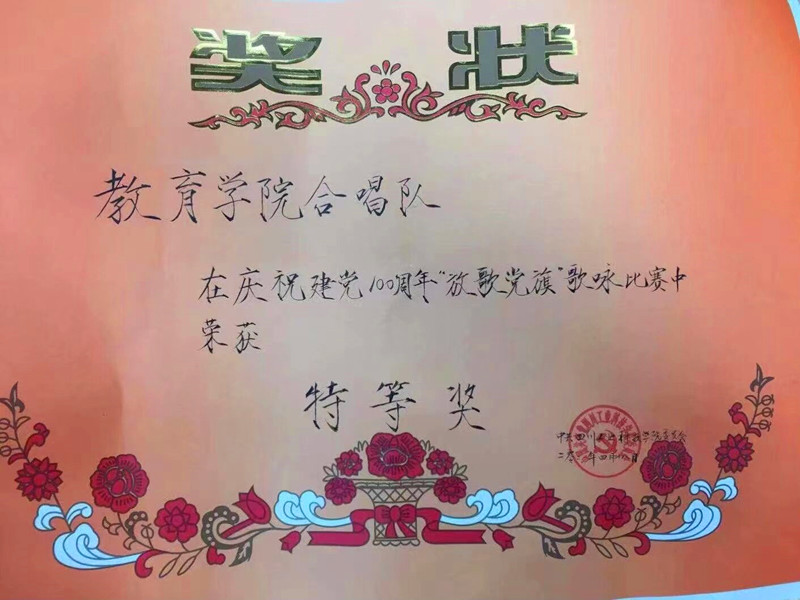 奖状
教育学院合唱队
在庆祝建党100周年“放歌党旗”歌咏比赛中
荣获
特等奖
中共四川工业科技学院委员会
二〇二一年四月